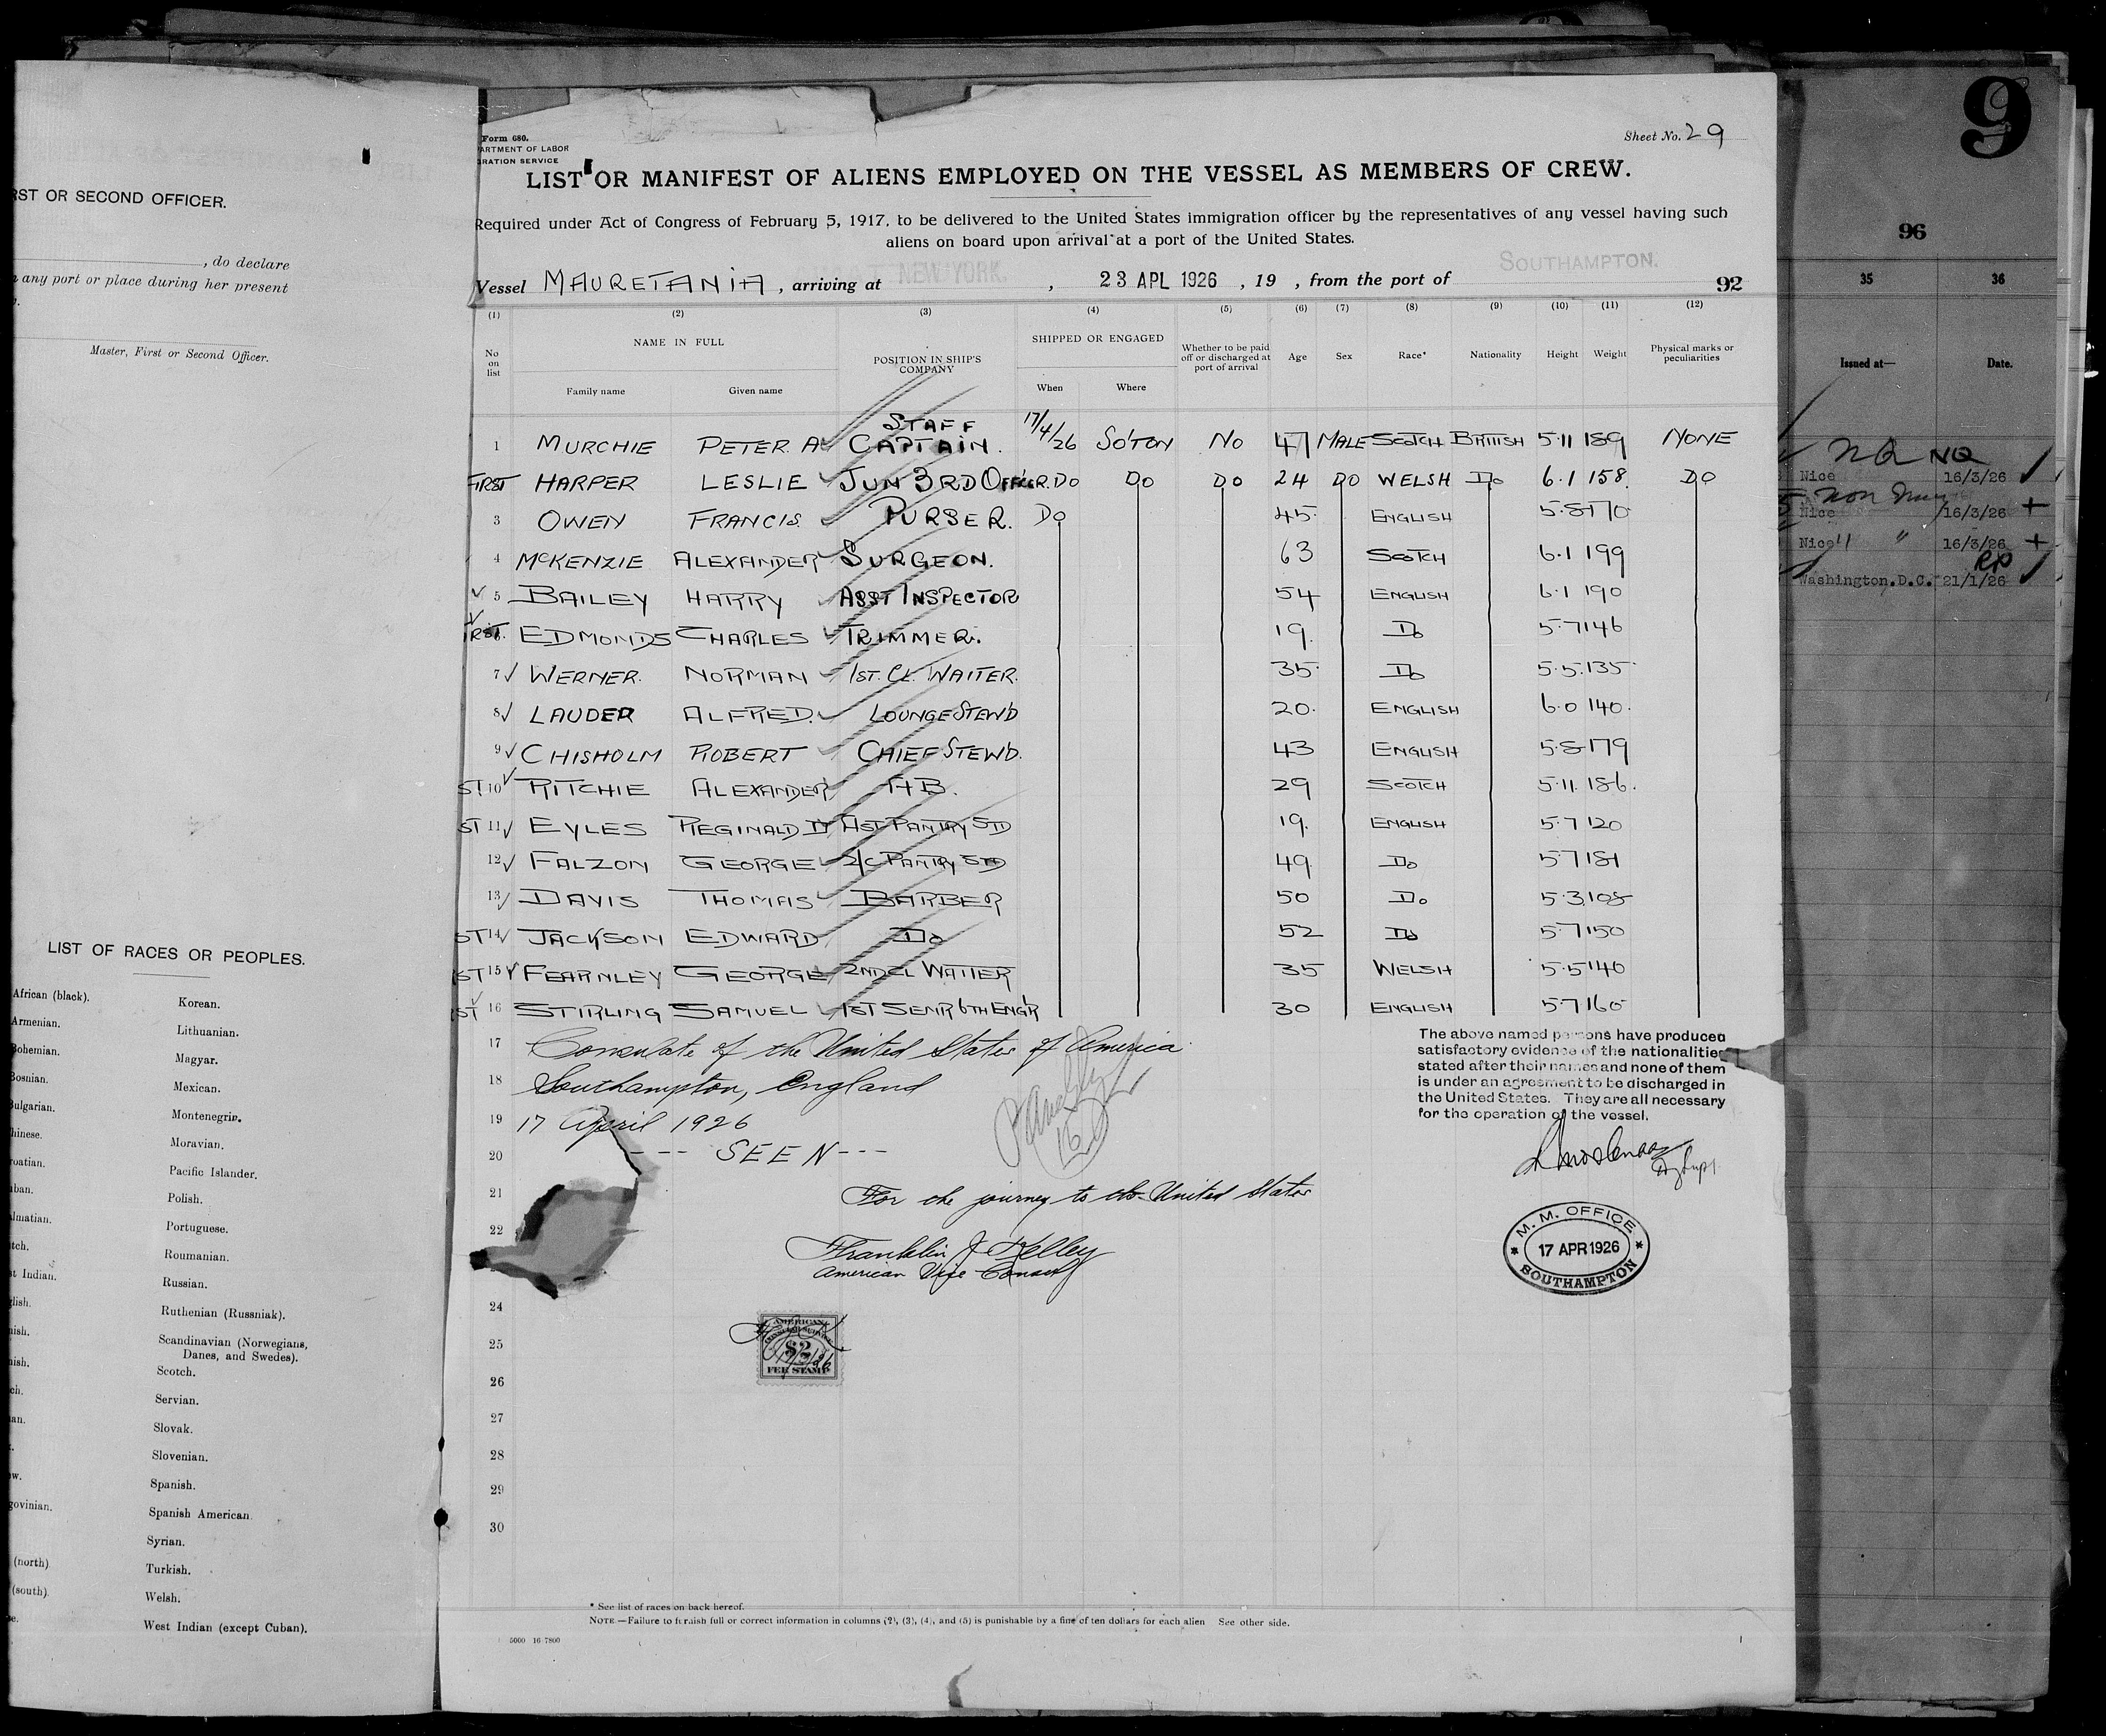 RST OR SECOND OFFICER.
, do declare
any port or place during her present
Master, First or Second Officer.
LIST OF RACES OR PEOPLES.
African (black). Korean.
Armenian. Lithuanian.
Bohemian. Magyar.
Bosnian. Mexican.
Bulgarian. Montenegrin.
hinese. Moravian.
roatian. Pacific Islander.
ban. Polish.
lmatian. Portuguese.
tch. Roumanian.
st Indian. Russian.
glish. Ruthenian (Russniak).
nish. Scandinavian (Norwegians, Danes, and Swedes).
nish. Scotch.
ch. Servian.
an. Slovak.
Slovenian.
w. Spanish.
govinian. Spanish American.
Syrian.
(north) Turkish.
(south) Welsh.
West Indian (except Cuban).
Form 680.
ARTMENT OF LABOR
GRATION SERVICE
Sheet No. 29
LIST OR MANIFEST OF ALIENS EMPLOYED ON THE VESSEL AS MEMBERS OF CREW.
Required under Act of Congress of February 5, 1917, to be delivered to the United States immigration officer by the representatives of any vessel having such
aliens on board upon arrival at a port of the United States.
Vessel MAURETANIA, arriving at NEW YORK. , 23 APL 1926 , 19 , from the port of SOUTHAMPTON. 92
(1) (2) (3) (4) (5) (6) (7) (8) (9) (10) (11) (12)
No on list NAME IN FULL Family name Given name POSITION IN SHIP'S COMPANY SHIPPED OR ENGAGED When Where Whether to be paid off or discharged at port of arrival Age Sex Race* Nationality Height Weight Physical marks or peculiarities
1 MURCHIE PETER A STAFF CAPTAIN. 17/4/26 SO'TON NO 47 MALE SCOTCH BRITISH 5·11 189 NONE
FIRST HARPER LESLIE JUN 3RD OFFICER. DO DO DO 24 DO WELSH DO 6·1 158. DO
3 OWEN FRANCIS. PURSER. DO 45. ENGLISH 5·8 170
4 McKENZIE ALEXANDER SURGEON. 63 SCOTCH 6·1 199
5 BAILEY HARRY ASST INSPECTOR 54 ENGLISH 6·1 190
RST. EDMONDS CHARLES TRIMMER. 19. DO 5·7 146
7 WERNER. NORMAN 1ST. CL. WAITER. 35. DO 5·5. 135
8 LAUDER ALFRED. LOUNGE STEWD 20. ENGLISH 6·0 140.
9 CHISHOLM ROBERT CHIEF STEWD. 43 ENGLISH 5·8 179
ST 10 RITCHIE ALEXANDER AB. 29 SCOTCH 5·11. 186.
ST 11 EYLES REGINALD W AST PANTRY STD 19. ENGLISH 5·7 120
12 FALZON GEORGE 2/C PANTRY STD 49 DO 5·7 181
13 DAVIS THOMAS BARBER 50 DO 5·3 108
ST 14 JACKSON EDWARD DO 52 DO 5·7 150
ST 15 FEARNLEY GEORGE 2ND CL WAITER 35 WELSH 5·5 140
ST 16 STIRLING SAMUEL 1ST SENR 6TH ENGR 30 ENGLISH 5·7 160
17 Consulate of the United States of America
18 Southampton, England
19 17 April 1926
20 --- SEEN ---
21 For the journey to the United States
22
Franklin J Kelley
American Vice Consul
24
25
26
27
28
29
30
AMERICAN
$2
FEE STAMP
The above named persons have produced
satisfactory evidence of the nationalities
stated after their names and none of them
is under an agreement to be discharged in
the United States. They are all necessary
for the operation of the vessel.
Dy Supt.
M. M. OFFICE
17 APR 1926
SOUTHAMPTON
* See list of races on back hereof.
NOTE.—Failure to furnish full or correct information in columns (2), (3), (4), and (5) is punishable by a fine of ten dollars for each alien See other side.
5000 16-7800
9
96
35 36
Issued at— Date.
NQ NQ
Nice 16/3/26
Nice 16/3/26
Nice " 16/3/26
Washington.D.C. 21/1/26